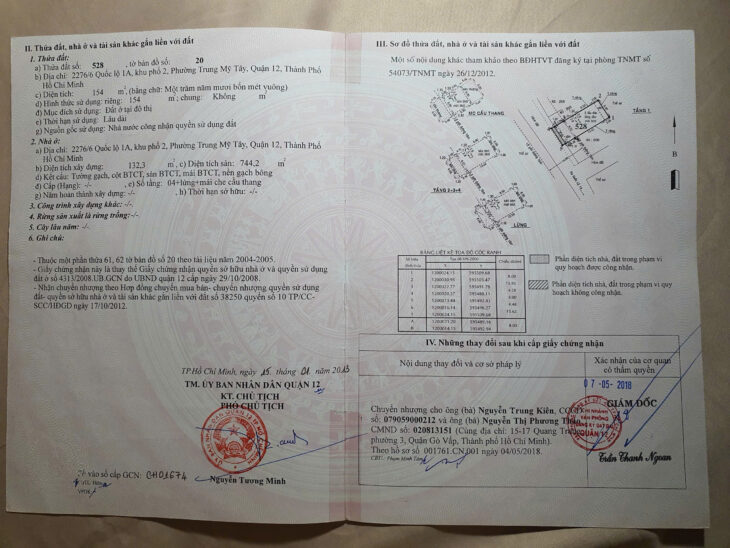 II. Thửa đất, nhà ở và tài sản khác gắn liền với đất
1. Thửa đất:
a) Thửa đất số: 528 , tờ bản đồ số: 20
b) Địa chỉ: 2276/6 Quốc lộ 1A, khu phố 2, Phường Trung Mỹ Tây, Quận 12, Thành Phố
Hồ Chí Minh
c) Diện tích: 154 m², (bằng chữ: Một trăm năm mươi bốn mét vuông)
d) Hình thức sử dụng: riêng: 154 m²; chung: Không m²
đ) Mục đích sử dụng: Đất ở tại đô thị
e) Thời hạn sử dụng: Lâu dài
g) Nguồn gốc sử dụng: Nhà nước công nhận quyền sử dụng đất
2. Nhà ở:
a) Địa chỉ: 2276/6 Quốc lộ 1A, khu phố 2, Phường Trung Mỹ Tây, Quận 12, Thành Phố
Hồ Chí Minh
b) Diện tích xây dựng: 132,3 m², c) Diện tích sàn: 744,2 m²
d) Kết cấu: Tường gạch, cột BTCT, sàn BTCT, mái BTCT, nền gạch bông
đ) Cấp (Hạng): -/- , e) Số tầng: 04+lửng+mái che cầu thang
g) Năm hoàn thành xây dựng: -/- , h) Thời hạn sở hữu: -/-
3. Công trình xây dựng khác: -/-
4. Rừng sản xuất là rừng trồng: -/-
5. Cây lâu năm: -/-
6. Ghi chú:
- Thuộc một phần thửa 61, 62 tờ bản đồ số 20 theo tài liệu năm 2004-2005.
- Giấy chứng nhận này là thay thế Giấy chứng nhận quyền sở hữu nhà ở và quyền sử dụng
đất ở số 4313/2008.UB.GCN do UBND quận 12 cấp ngày 29/10/2008.
- Nhận chuyển nhượng theo Hợp đồng chuyển mua bán- chuyển nhượng quyền sử dụng
đất- quyền sở hữu nhà ở và tài sản khác gắn liền với đất số 38250 quyển số 10 TP/CC-
SCC/HĐGD ngày 17/10/2012.
TP Hồ Chí Minh, ngày 15 tháng 01 năm 2013
TM. ỦY BAN NHÂN DÂN QUẬN 12
KT. CHỦ TỊCH
PHÓ CHỦ TỊCH
Nguyễn Tương Minh
vào sổ cấp GCN: CH01674
III. Sơ đồ thửa đất, nhà ở và tài sản khác gắn liền với đất
Một số nội dung khác tham khảo theo BĐHTVT đăng ký tại phòng TNMT số
54073/TNMT ngày 26/12/2012.
MC CẦU THANG
TẦNG 1
528
B
TẦNG 2-3-4
LỬNG
BẢNG LIỆT KÊ TỌA ĐỘ GÓC RANH
Phần diện tích nhà, đất trong phạm vi
quy hoạch được công nhận.
Phần diện tích nhà, đất trong phạm vi quy
hoạch không công nhận.
IV. Những thay đổi sau khi cấp giấy chứng nhận
Nội dung thay đổi và cơ sở pháp lý
Xác nhận của cơ quan
có thẩm quyền
07-05-2018
GIÁM ĐỐC
Chuyển nhượng cho ông (bà) Nguyễn Trung Kiên, CCCD
số: 079059000212 và ông (bà) Nguyễn Thị Phương Thảo,
CMND số: 020813151 (Cùng địa chỉ: 15-17 Quang Trung,
phường 3, Quận Gò Vấp, Thành phố Hồ Chí Minh).
Theo hồ sơ số 001761.CN.001 ngày 04/05/2018.
Trần Thanh Ngoan